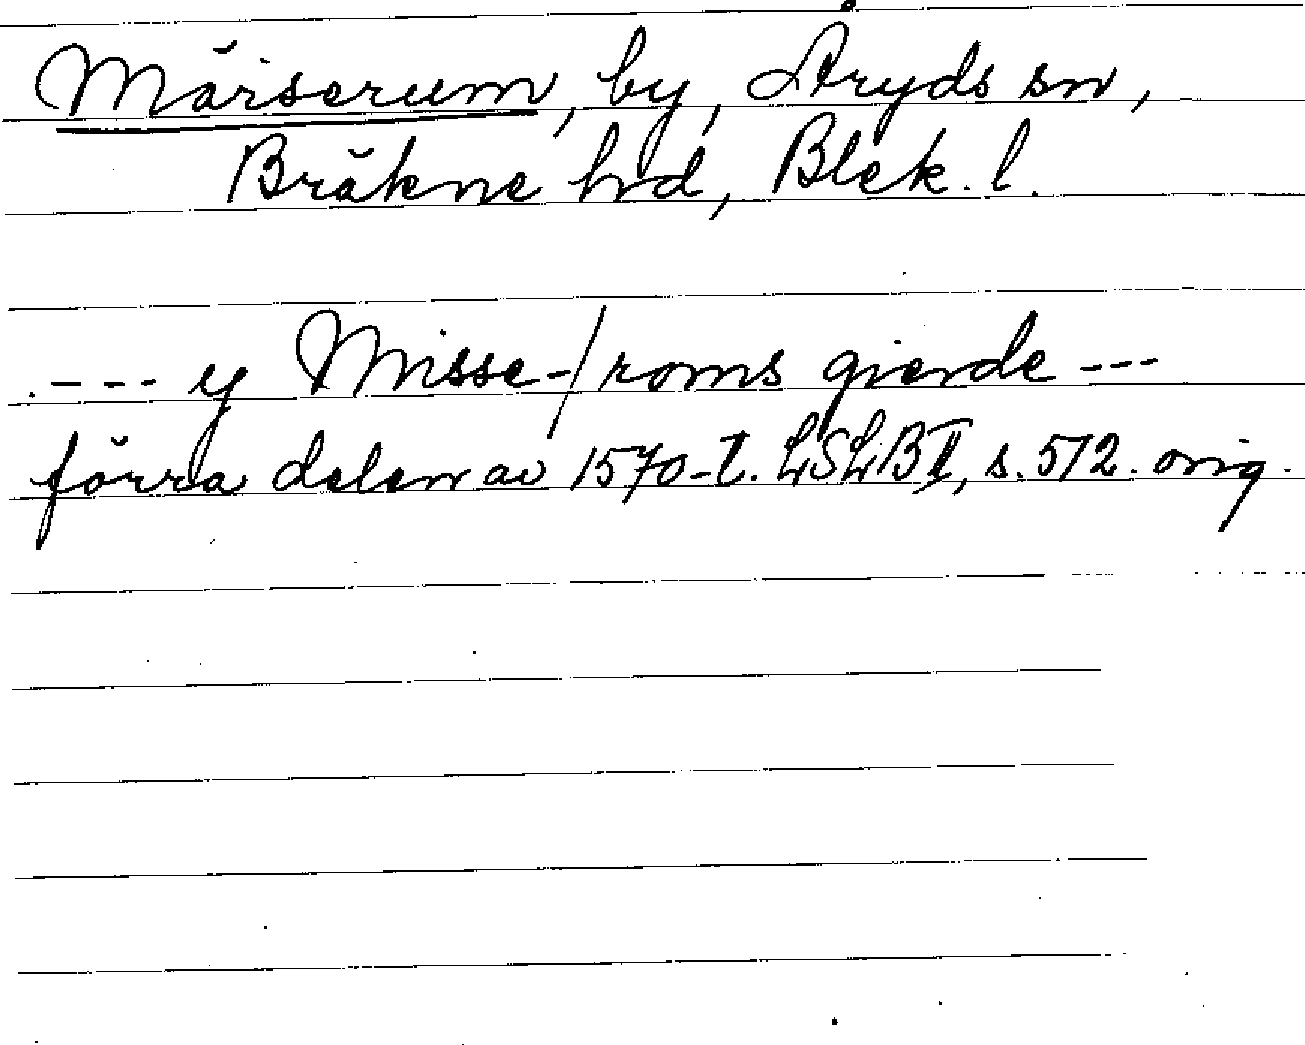 Märserum, by, Åryds sn,
Bräkne hd, Blek. l.
---- y Misse-/roms gierde ---
förra delen av 1570-t. LSLB II, s. 572. orig.